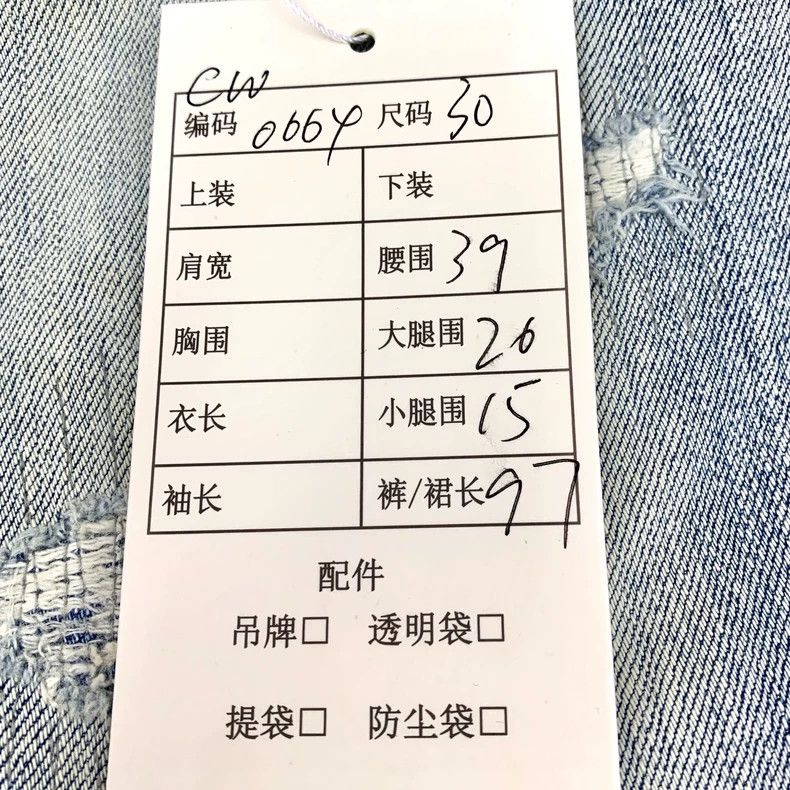 CW
编码 0664 尺码 30
上装 下装
肩宽 腰围 39
胸围 大腿围 26
衣长 小腿围 15
袖长 裤/裙长 97
配件
吊牌□ 透明袋□
提袋□ 防尘袋□